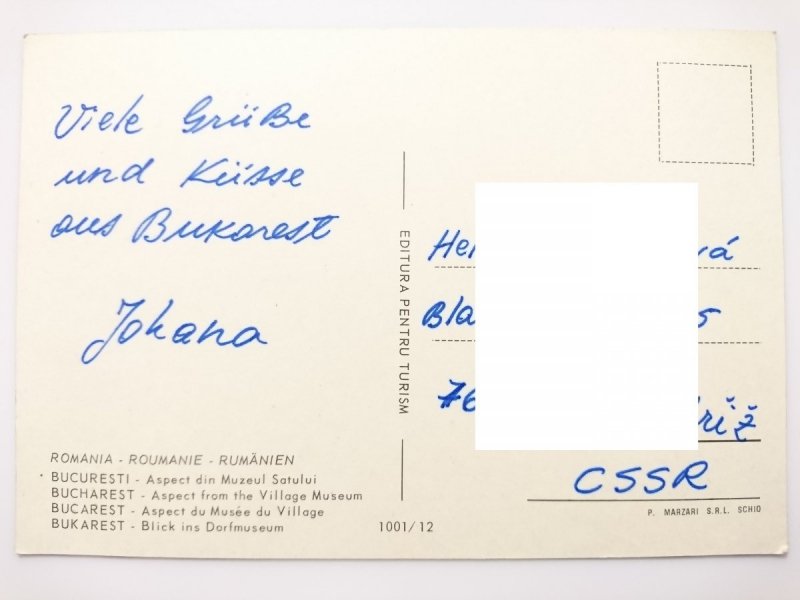 Viele Grüße
und Küsse
aus Bukarest
Johana
ROMANIA - ROUMANIE - RUMÄNIEN
BUCURESTI - Aspect din Muzeul Satului
BUCHAREST - Aspect from the Village Museum
BUCAREST - Aspect du Musée du Village
BUKAREST - Blick ins Dorfmuseum
EDITURA PENTRU TURISM
1001/12
CSSR
P. MARZARI S.R.L. SCHIO